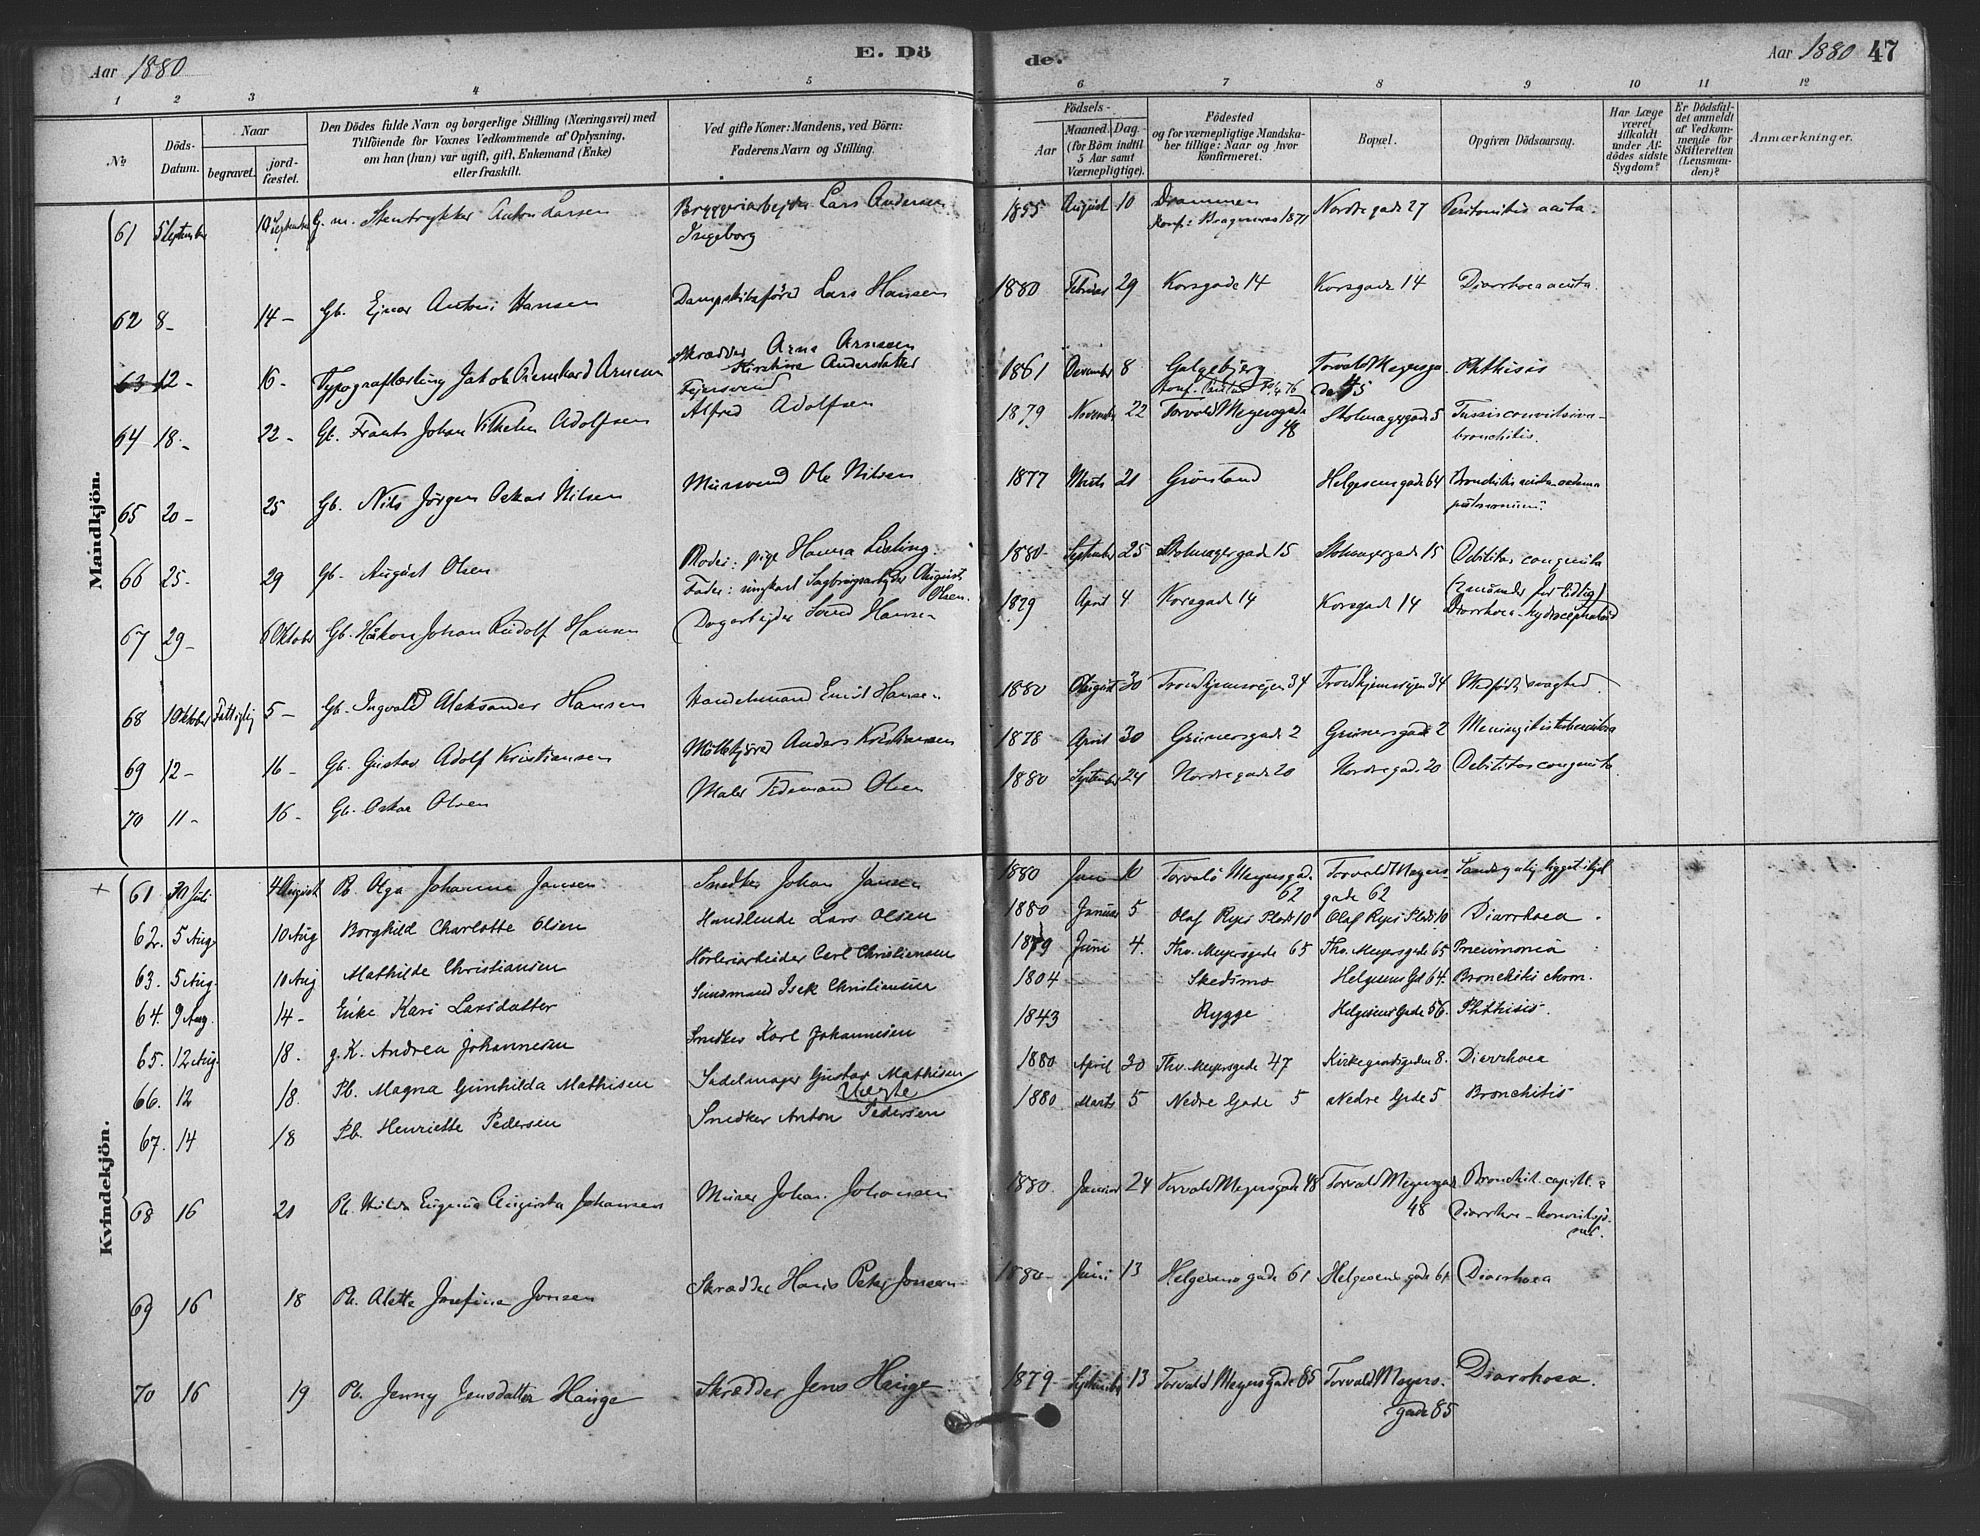 Aar 1880
E. Dö
de.
Aar 1880 47
1 2 3 4 5 6 7 8 9 10 11 12
№
Döds-Datum.
Naar
begravet.
jord-fæstet.
Den Dödes fulde Navn og borgerlige Stilling (Næringsvei) med
Tilföiende for Voxnes Vedkommende af Oplysning,
om han (hun) var ugift, gift, Enkemand (Enke)
eller fraskilt.
Ved gifte Koner: Mandens, ved Börn:
Faderens Navn og Stilling.
Födsels-
Aar
Maaned. Dag.
(for Börn indtil 5 Aar samt Værnepligtige).
Födested
og for værnepligtige Mandska-
ber tillige: Naar og hvor
konfirmeret.
Bopæl.
Opgiven Dödsaarsag.
Har Læge været tilkaldt under Af-dödes sidste Sygdom?
Er Dödsfal-det anmeldt af Vedkom-mende for Skifteretten (Lensman-den)?
Anmærkninger.
Mandkjön.
61 5 September 10 September G. m. Stentrykker Anton Larsen Bryggeriarbejder Lars Andersen 1855 August 10 Drammen Nordregade 27 Peritonitis acuta.
Ingeborg Konf: Bragernes 1871
62 8 - 14 - Gb. Ejnar Antoni Hansen Dampskibsfører Lars Hansen 1880 Februar 29 Korsgade 14 Korsgade 14 Diarrhoea acuta.
63 12 - 16 - Typograflærling Jakob Bernhard Arnesen Skrædder Arne Arnesen 1861 December 8 Galgebjerg Torvald Meyersga- Phthisis
Kirstine Andersdatter de 45
64 18 - 22 - Gb. Frants Johan Vilhelm Adolfsen Alfred Adolfsen 1879 November 22 Torvald Meyersgade 48 Skolmagergade 5 Tussis convulsiva -
bronchitis.
65 20 - 25 Gb. Nils Jörgen Oskar Nilsen Mursvend Ole Nilsen 1877 Marts 21 Grönland Helgesensgade 64 Bronchitis acuta - oedema
pulmonum.
66 25 - 29 Gb. August Olsen Moder: pige Hanna Lieling. 1880 - September 25 Skolmagergade 15 Skolmagergade 15 Debilitas congenita
Fader: ungkarl Sagbrugsarbejder August Olsen. (2 måneder for tidlig)
67 29 - 6 Oktober Gb. Håkon Johan Rudolf Hansen Dagarbejder Hansen 1879 April 4 Korsgade 14 Korsgade 14 Diarrhoea - hydrocephaloid
68 1 Oktober Fattigvg 5 - Gb. Ingvald Aleksander Hansen Handelsmand Emil Hansen 1880 August 30 Trondhjemsvejen 34 Trondhjemsvejen 34 Medfødt svaghed.
69 12 - 16 - Gb. Gustav Adolf Kristiansen Anders Kristiansen 1878 April 30 Grünersgade 2 Grünersgade 2 Meningitis tuberculosa
70 11 - 16 - Gb. Oskar Olsen Maler Tidemand Olsen 1880 September 24 Nordregade 20 Nordregade 20 Debilitas congenita.
Kvindekjön.
+ 61 30 Juli 4 August Pb. Olga Johanne Jansen Snedker Johan Jansen 1880 Juni 10 Torvald Meyersgade 62 Torvald Meyers-gade 62 Sandsynlig ligget ihjel
62. 5 Aug. 10 Aug Borghild Charlotte Olsen Handlende Lars Olsen 1880 Januar 5 Olaf Ryes Plads 10 Olaf Ryes Plads 10 Diarrhoea.
63. 5 Aug. 10 Aug Mathilde Christiansen Carl Christiansen 1879 Juni 4. Thv. Meyersgade 65 Thv. Meyersgade 65 Pneumonia
64. 9 Aug. 14 - Enke Kari Larsdatter Isek Christiansen 1804 Skedsmo Helgesens Gd 64. Bronchitis chron.
65. 12 Aug. 18. g. K. Andrea Johannesen Snedker Karl Johannesen 1843 Rygge Helgesens Gade 56. Phthisis.
66. 12 18. Pb. Magna Gunhilda Mathisen Sadelmager Gustav Mathisen 1880 April 30 Thv. Meyersgade 47 Kirkegaardsgaden 8. Diarrhoea
67. 14 18 Pb. Henriette Pedersen Snedker Anton Pedersen 1880 Marts 5 Nedre Gade 5 Nedre Gade 5 Bronchitis
68 16 21 Pb. Hulda Eugenia Augusta Johansen Murer Johan Johansen 1880. Januar 24 Torvald Meyersgade 48 Torvald Meyersgade 48 Bronchit. capill. &
Diarrhoe -
69 16 18 Pb. Alette Josefine Jonsen Skrædder Hans Peter Jonsen 1880 - Juni 13 Helgesens gade 61 Helgesens gade 61 Diarrhoea
70 16 19 Pb. Jenny Jensdatter Hauge Skrædder Jens Hauge 1879 September 13 Torvald Meyersgade 85 Torvald Meyers-gade 85 Diarrhoea.